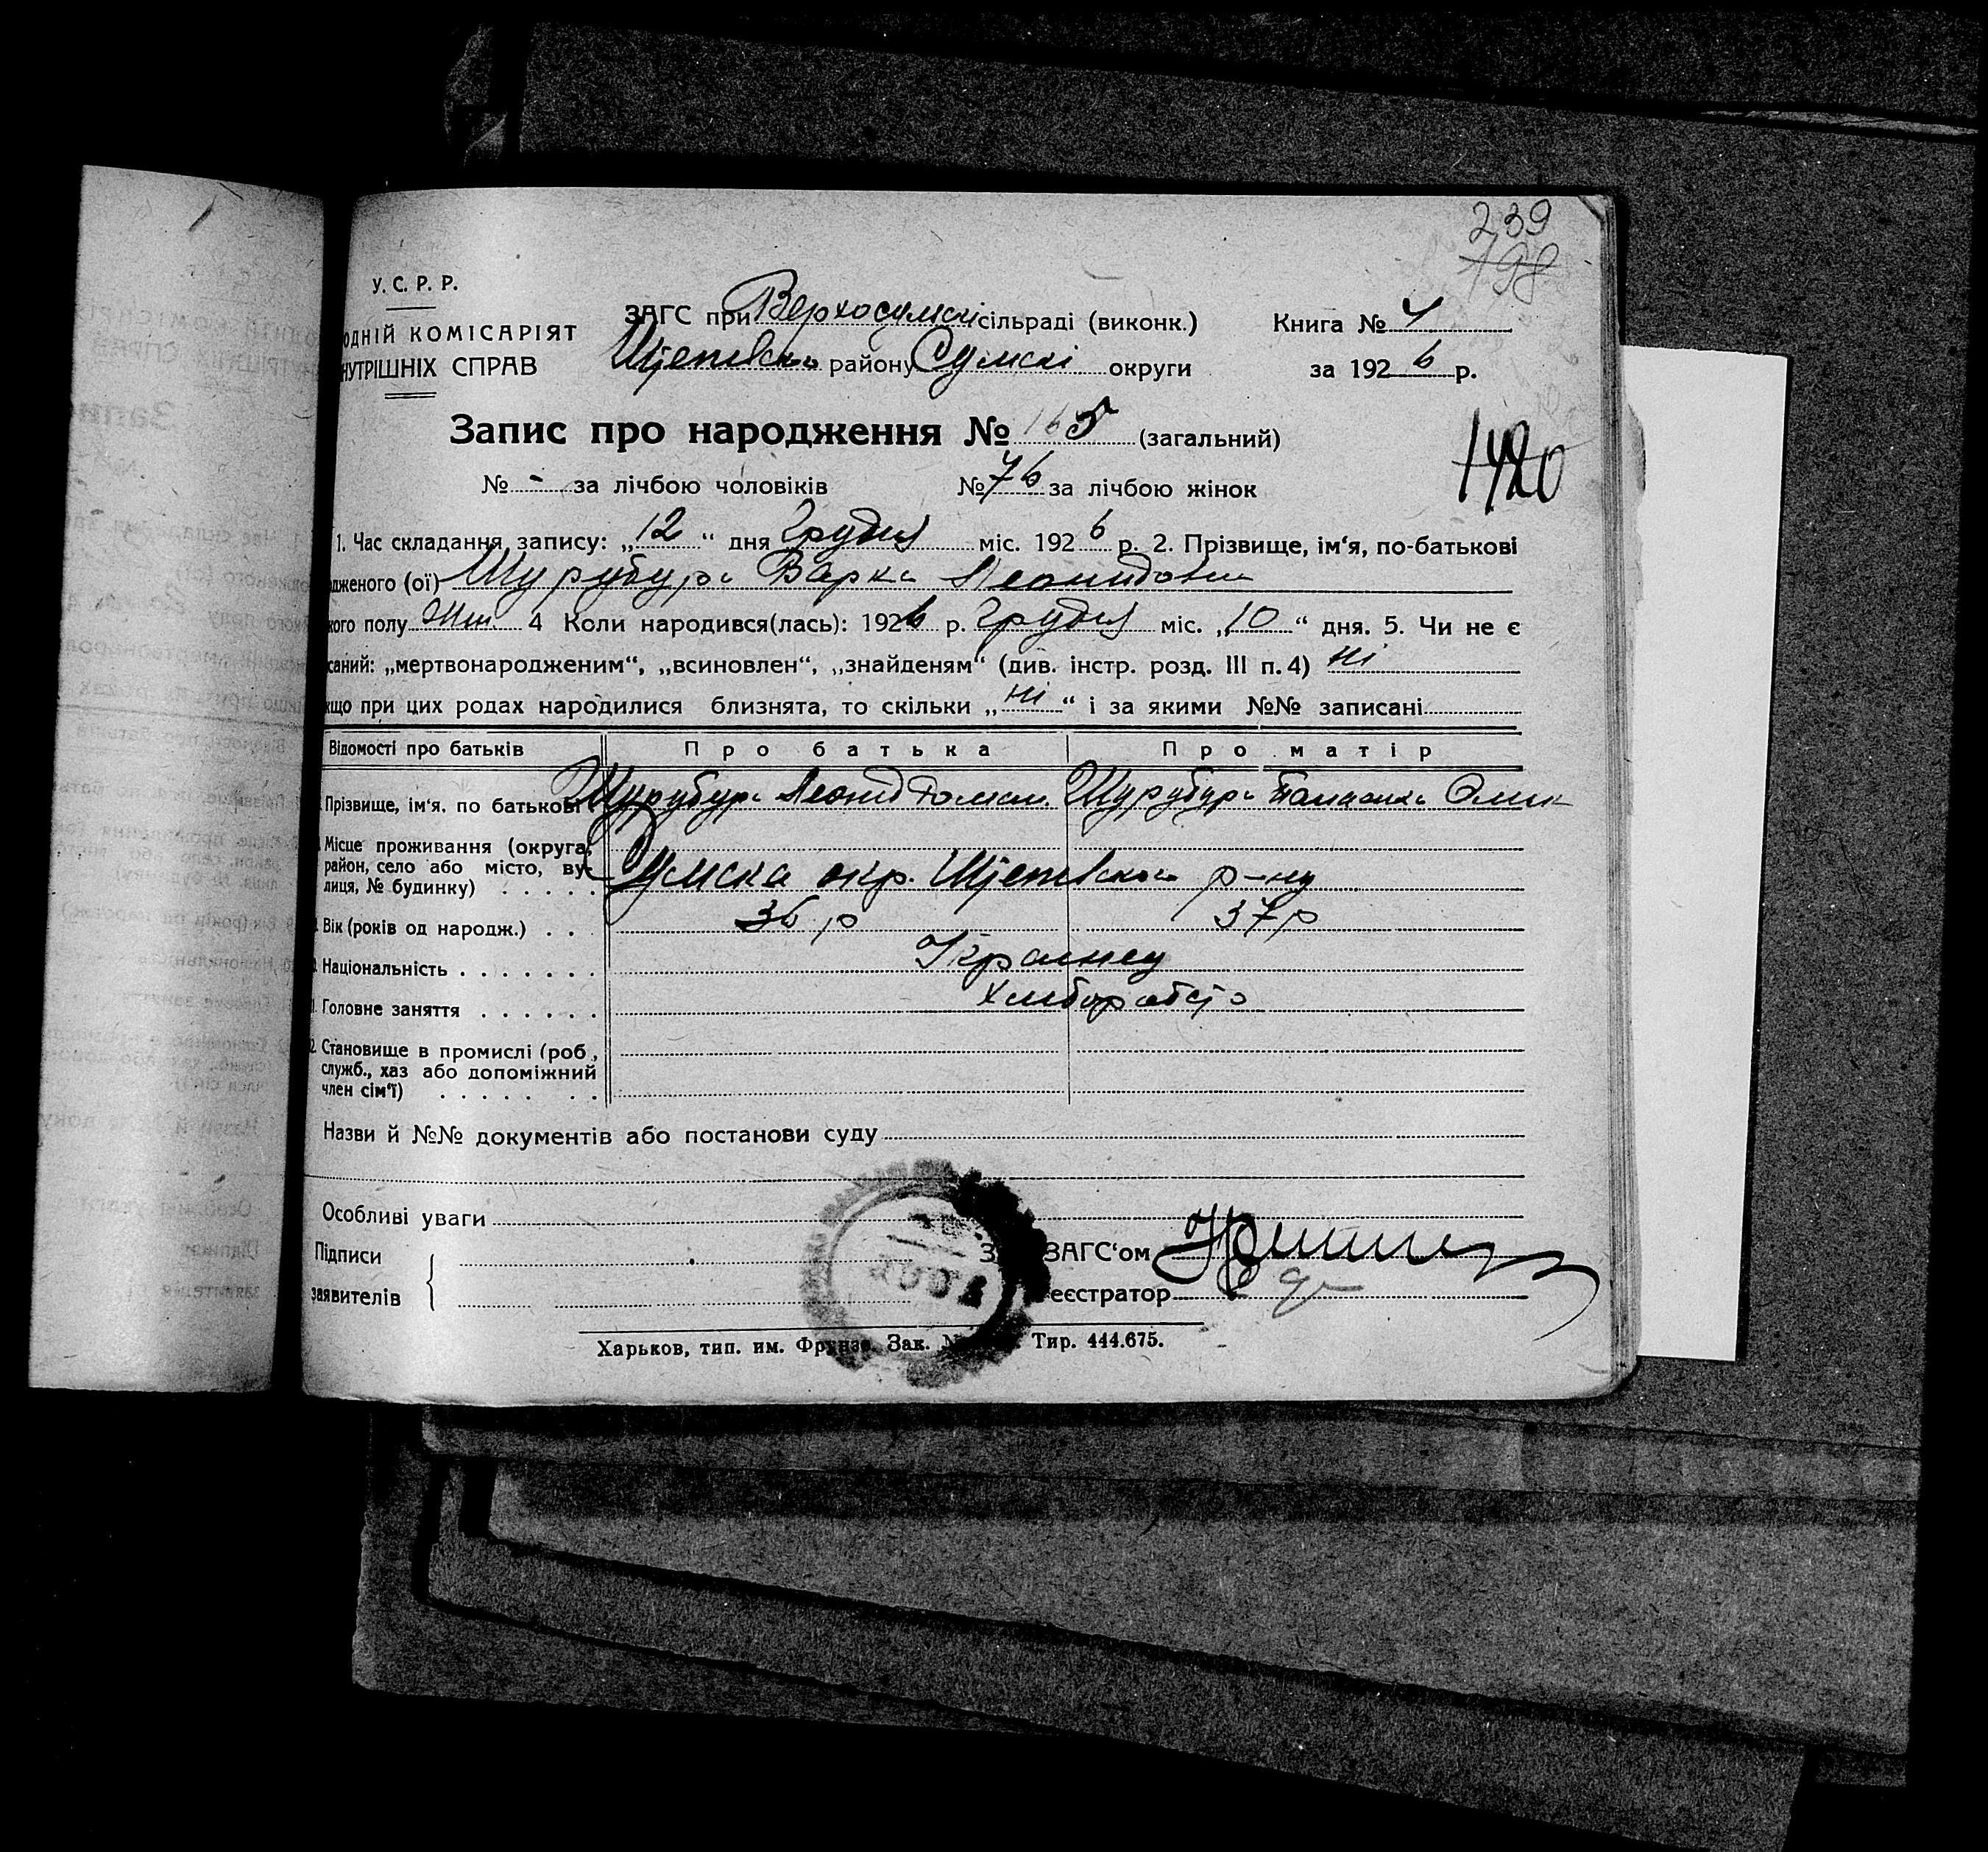 239
198
У. С. Р. Р.
ОДНІЙ КОМІСАРІЯТ
НУТРІШНІХ СПРАВ
ЗАГС при Верхосумскі сільраді (виконк.)
району Сумскі округи
Книга № 4
за 1926 р.
Запис про народження № 165 (загальний)
1420
№ - за лічбою чоловіків № 76 за лічбою жінок
1. Час складання запису: „12“ дня Грудня міс. 1926 р. 2. Прізвище, ім‘я, по-батькові
дженого (ої) Шурубура Варка Леонидовна
кого полу Жін. 4 Коли народився(лась): 1926 р. Грудня міс. „10“ дня. 5. Чи не є
саний: „мертвонародженим“, „всиновлен“, „знайденям“ (див. інстр. розд. III п. 4) ні
кщо при цих родах народилися близнята, то скільки „ні“ і за якими №№ записані
Відомості про батьків Про батька Про матір
Прізвище, ім‘я. по батькові Шурубура Леонид Шурубура
Місце проживання (округа,
район, село або місто, ву-
лиця, № будинку) Сумска окр. р-ну
Вік (років од народж.) 36 р 37 р
Національність Украинец
Головне заняття
Становище в промислі (роб.,
служб., хаз або допоміжний
член сім‘ї)
Назви й №№ документів або постанови суду
Особливі уваги
Підписи
заявителів
З ЗАГС‘ом
еєстратор
Харьков, тип. им. Фрунзе. Зак. № Тир. 444.675.